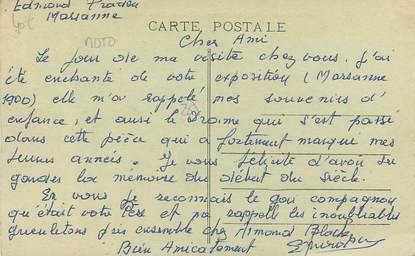 Edmond
Marsanne
CARTE POSTALE
Cher Ami
Le jour de ma visite chez vous, j'ai
été enchanté de votre exposition (Marsanne
1900) elle m'a rappelé mes souvenirs d'
enfance, et aussi le drame qui s'est passé
dans cette pièce qui a fortement marqué mes
jeunes années. Je vous félicite d'avoir su
garder la mémoire du début du siècle.
En vous je reconnais le gai compagnon
qu'était votre Père et me rappelle les inoubliables
gueuletons pris ensemble chez Armond Blache
Bien Amicalement